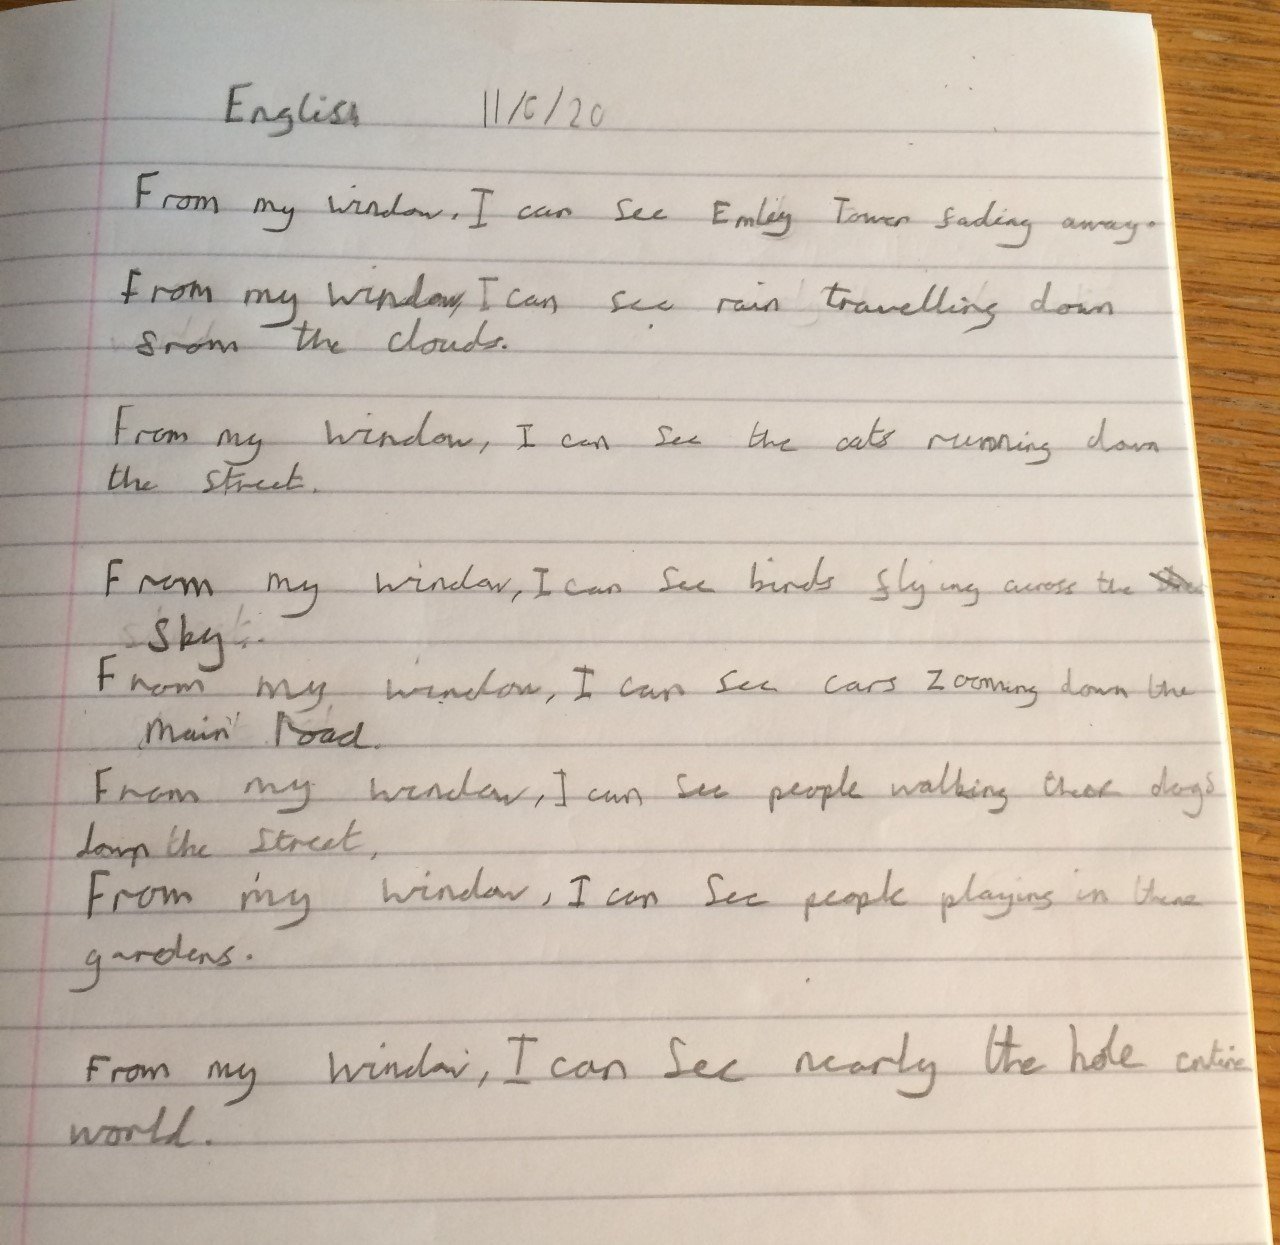 English 11/6/20
From my window, I can see Emley Tower fading away.
From my window, I can see rain travelling down
from the clouds.
From my window, I can see the cats running down
the street.
From my window, I can see birds flying across the
sky.
From my window, I can see cars zooming down the
main road.
From my window, I can see people walking dogs
down the street.
From my window, I can see people playing in there
gardens.
From my window, I can see nearly the hole entire
world.